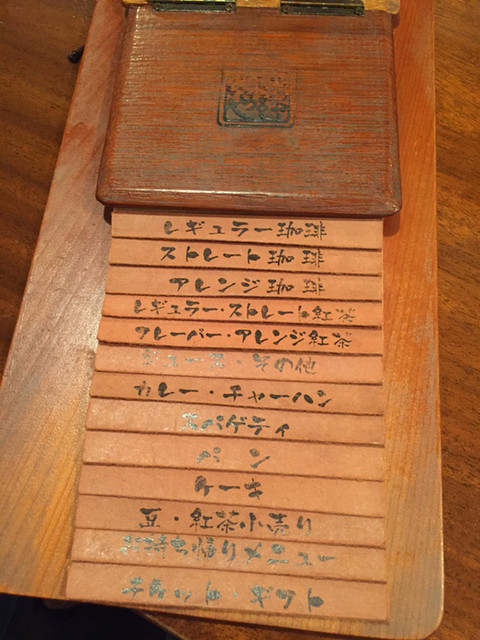 レギュラー珈琲
ストレート珈琲
アレンジ珈琲
レギュラー・ストレート紅茶
フレーバー・アレンジ紅茶
ジュース・その他
カレー・チャーハン
スパゲティ
パン
ケーキ
豆・紅茶小売り
お持ち帰りメニュー
チケット・ギフト